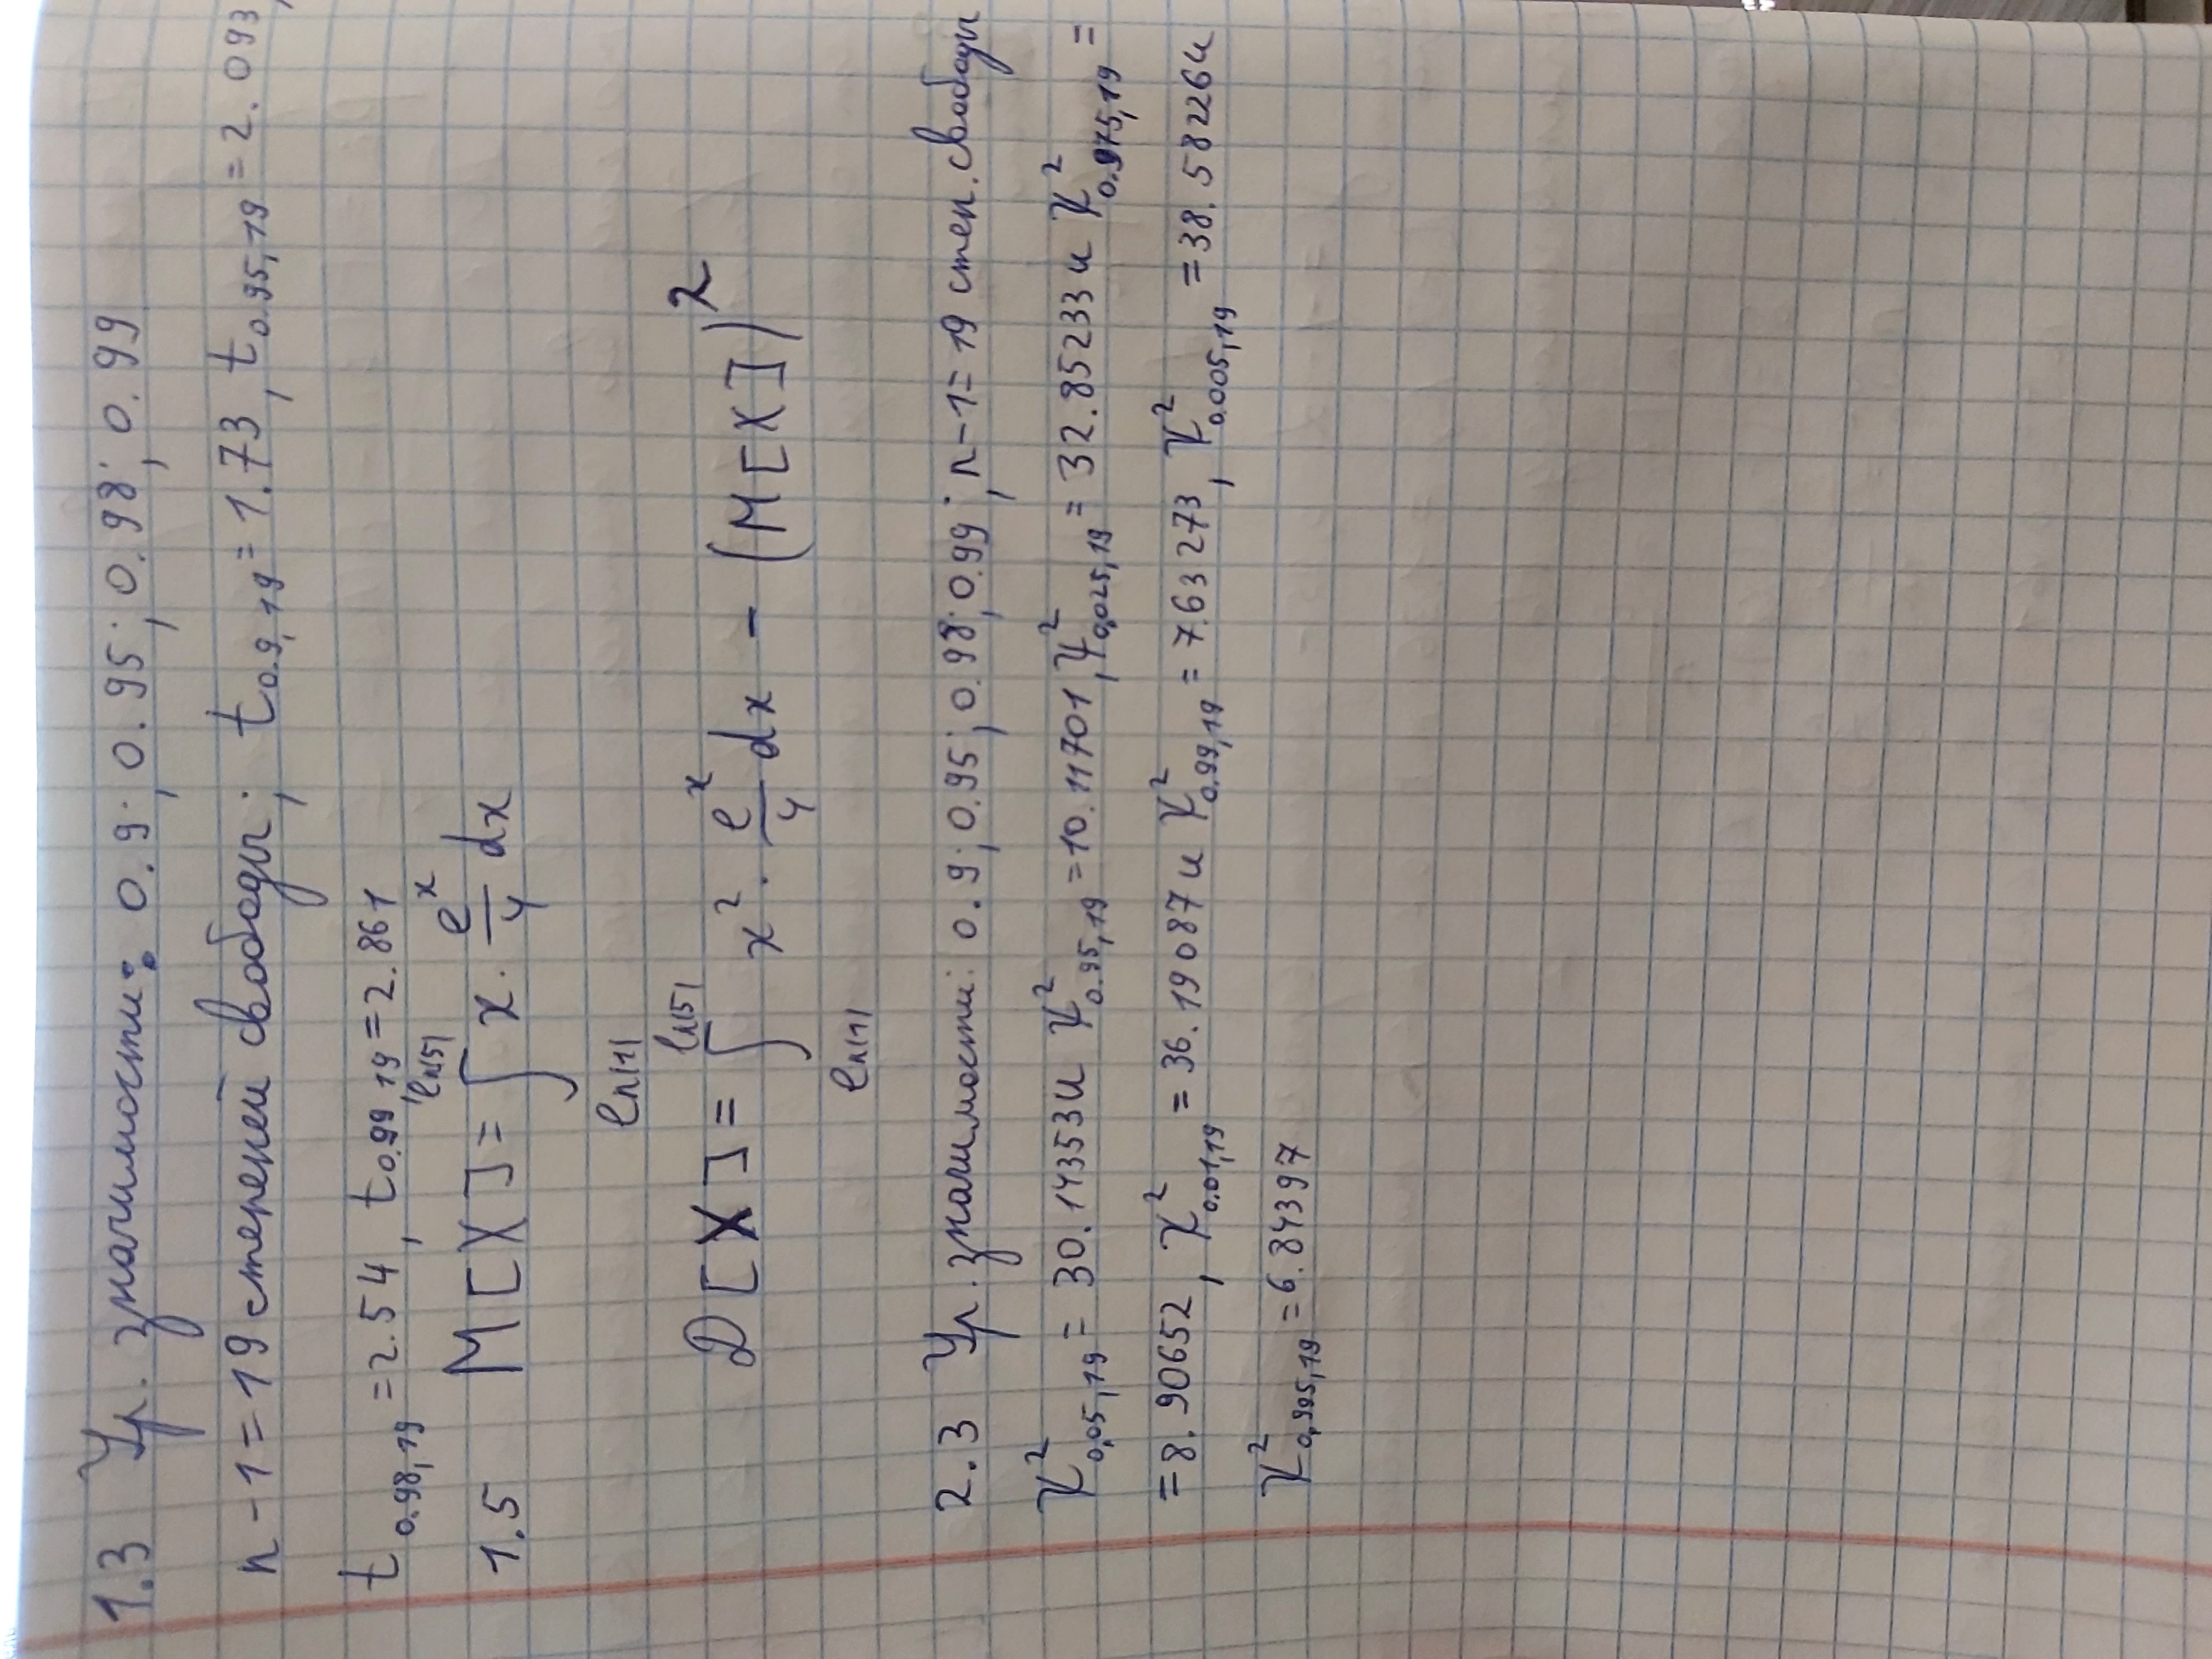 1.3 Ур. значимости: 0.9; 0.95; 0.98; 0.99
n-1=19 степеней свободы; t₀.₉,₁₉=1.73, t₀.₉₅,₁₉=2.093,
t₀.₉₈,₁₉=2.54, t₀.₉₉,₁₉=2.861
1.5 M[X]= ∫_{ln(1)}^{ln(5)} x · e^x/4 dx
D[X]= ∫_{ln(1)}^{ln(5)} x² · e^x/4 dx - (M[X])²
2.3 Ур. значимости: 0.9; 0.95; 0.98; 0.99; n-1=19 степ. свободы
χ²_{0,05,19} = 30.14353 и χ²_{0.95,19} =10.11701, χ²_{0,025,19} = 32.85233 и χ²_{0.975,19} =
=8.90652, χ²_{0.01,19} = 36.19087 и χ²_{0.99,19} = 7.63273, χ²_{0.005,19} =38.58226 и
χ²_{0,995,19} =6.84397